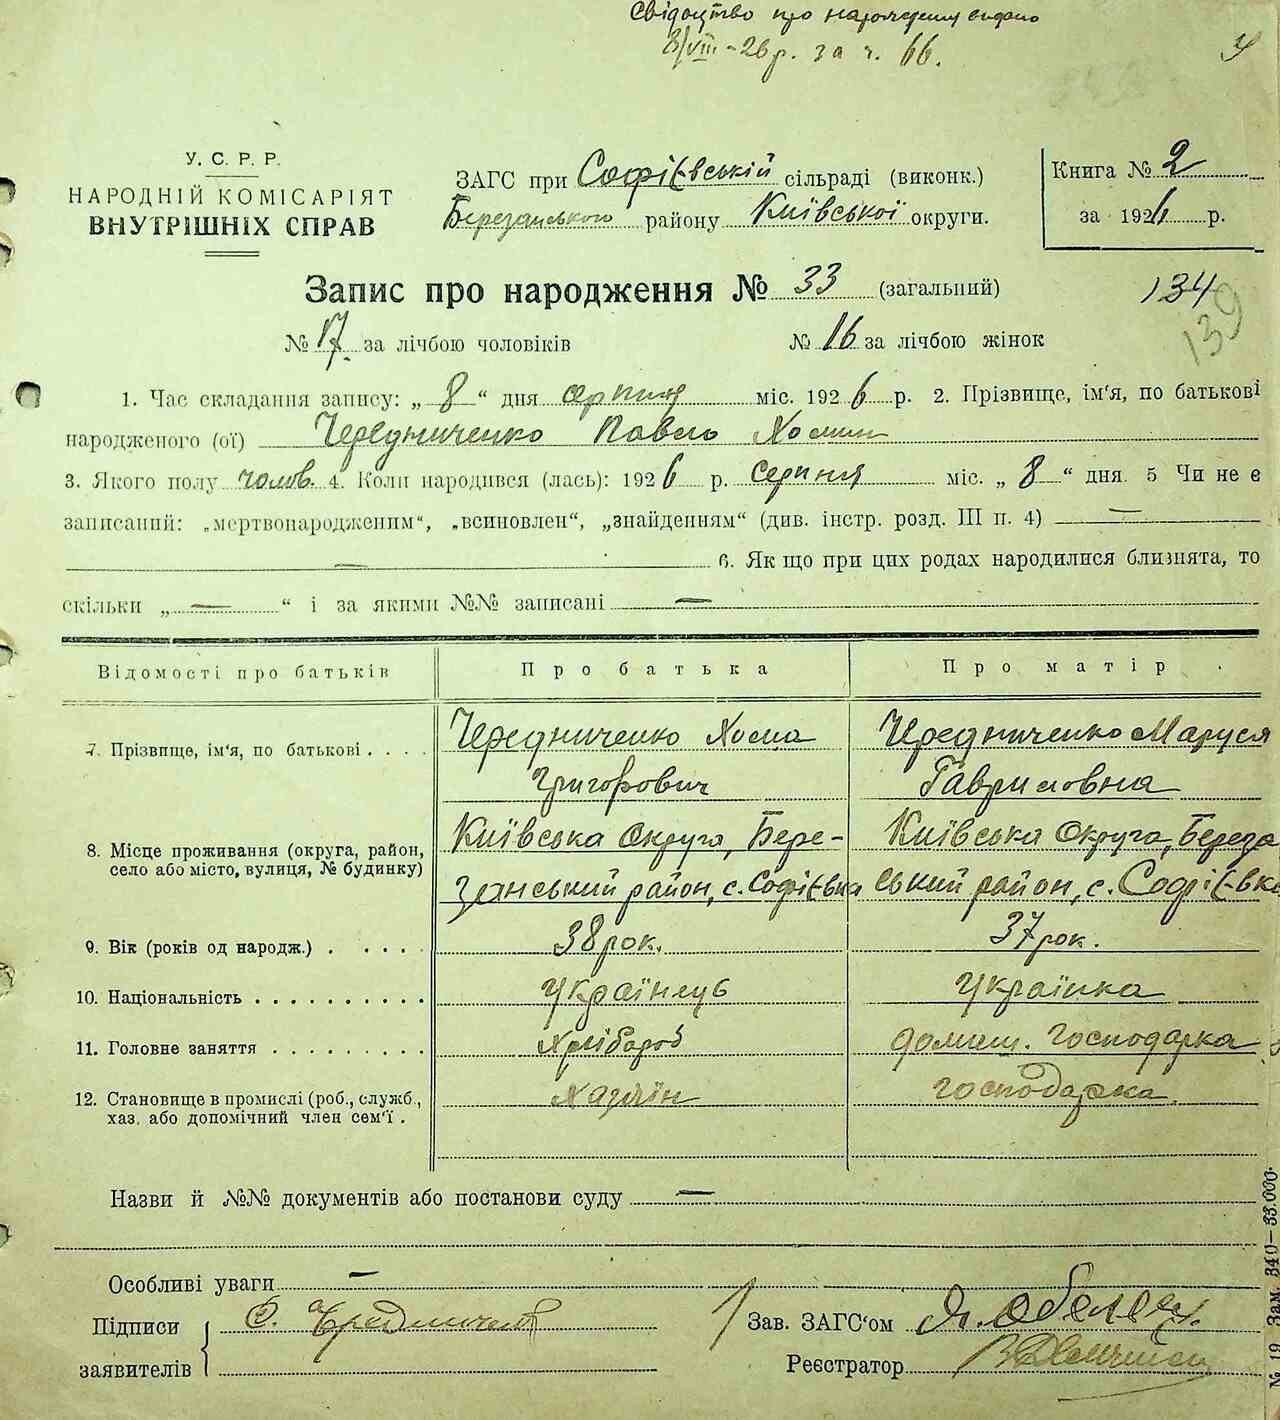 Свідоцтво про народження видано
8/VIII-26 р. за ч. 66.
У. С. Р. Р.
НАРОДНІЙ КОМІСАРІЯТ
ВНУТРІШНІХ СПРАВ
ЗАГС при Софіївській сільраді (виконк.)
Березанського району Київської округи.
Книга № 2
за 1926 р.
Запис про народження № 33 (загальний)
134
139
№ 17 за лічбою чоловіків № 16 за лічбою жінок
1. Час складання запису: „ 8 “ дня серпня міс. 1926 р. 2. Прізвище, ім‘я, по батькові
народженого (ої) Чередниченко Павло Хомич
3. Якого полу чолов. 4. Коли народився (лась): 1926 р. Серпня міс. „ 8 “ дня. 5 Чи не є
записаний: „мертвонародженим“, „всиновлен“, „знайденням“ (див. інстр. розд. III п. 4) —
— 6. Як що при цих родах народилися близнята, то
скільки „ — “ і за якими №№ записані —
Відомості про батьків Про батька Про матір
7. Прізвище, ім‘я, по батькові . . . . Чередниченко Хома Григорович Чередниченко Маруся Гавриловна
8. Місце проживання (округа, район, село або місто, вулиця, № будинку) Київська Округа, Бере-занський район, с. Софіївка Київська Округа, Береза ський район, с. Софіївка
9. Вік (років од народж.) . . . . . 38 рок. 37 рок.
10. Національність . . . . . . . . . . Українець Українка
11. Головне заняття . . . . . . . . . Хлібороб домаш. господарка
12. Становище в промислі (роб., служб., хаз. або допомічний член сем‘ї . Хазяїн господарка
Назви й №№ документів або постанови суду —
Особливі уваги —
Підписи
заявителів
Зав. ЗАГС‘ом
Реєстратор
№ 19 Зам. 340—33.000.